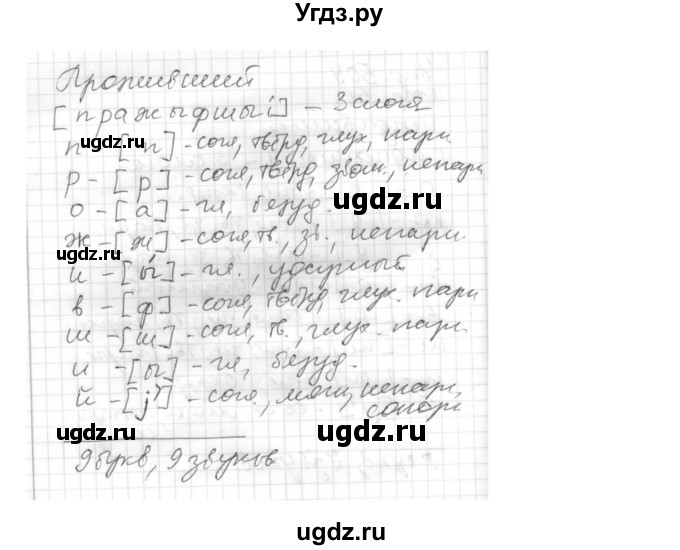 Угдз.ру
Проживший
[пражыфшыĭ] – 3 слога
п – [п] – согл, твёрд, глух, парн
ugdz.ru
р – [р] – согл, твёрд, звон., непарн
о – [а] – гл, безуд.
ugdz.ru
ж – [ж] – согл, тв., зв., непарн.
ugdz.ru
и – [ы́] – гл., ударный
в – [ф] – согл, твёрд, глух. парн
ш – [ш] – согл, тв., глух. парн
ugdz.ru
и – [ы] – гл, безуд.
й – [j'] – согл., мягк, непарн,
сонорн
ugdz.ru
ugdz.ru
9 букв, 9 звуков
ugdz.ru